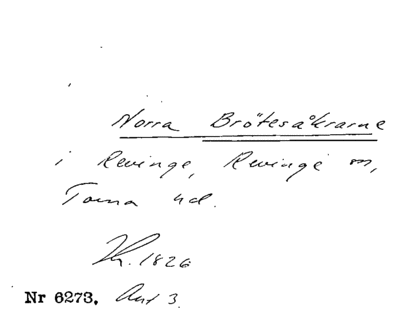 Norra Brötesåkrarne
i Revinge, Revinge sn,
Torna hd.
1826
Nr 6273. Ant 3.